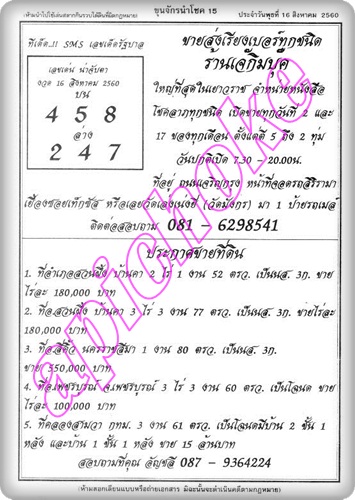 (ห้ามนำไปใช้เล่นสลากกินรวบได้สินทีมีผิดกฎหมาย)
ขุนจักรนำโชค 15
ประจำวันพุธที่ 16 สิงหาคม 2560
ทีเด็ด..!! SMS เลขเด็ดรัฐบาล
เลขเด่น น่าจับตา
งวด 16 สิงหาคม 2560
บน
4 5 8
ล่าง
2 4 7
ขายส่งเรียงเบอร์ทุกชนิด
ร้านเจ๊กิมบุ๊ค
ใหญ่ที่สุดในเยาวราช จำหน่ายหนังสือ
โชคลาภทุกชนิด เปิดขายทุกวันที่ 2 และ
17 ของทุกเดือน ตั้งแต่ตี 5 ถึง 2 ทุ่ม
วันปกติเปิด 7.30 - 20.00น.
ที่อยู่ ถนนเจริญกรุง หน้าที่จอดรถสิริรามา
เยื้องซอยเท็กซัส หรือเลยวัดเล่งเน่ยยี่ (วัดมังกร) มา 1 ป้ายรถเมล์
ติดต่อสอบถาม 081 - 6298541
ประกาศขายที่ดิน
1. ที่อำเภอสวนผึ้ง บ้านคา 2 ไร่ 1 งาน 52 ตรว. เป็นนส. 3ก. ขาย
ไร่ละ 180,000 บาท
2. ที่อ.สวนผึ้ง บ้านคา 3 ไร่ 3 งาน 77 ตรว. เป็นนส. 3ก. ขายไร่ละ
180,000 บาท
3. ที่อ.สีคิ้ว นครราชสีมา 1 งาน 80 ตรว. เป็นนส. 3ก.
ขาย 550,000 บาท
4. ที่อ.เพชรบูรณ์ จ.เพชรบูรณ์ 3 ไร่ 3 งาน 60 ตรว. เป็นโฉนด ขาย
ไร่ละ 100,000 บาท
5. ที่คลองสามวา กทม. 3 งาน 61 ตรว. เป็นโฉนดมีบ้าน 2 ชั้น 1
หลัง และบ้าน 1 ชั้น 1 หลัง ขาย 15 ล้านบาท
สอบถามที่คุณ อัญชลี 087 - 9364224
(ห้ามลอกเลียนแบบหรือถ่ายเอกสาร มิฉะนั้นจะดำเนินคดีตามกฎหมาย)
apichoke